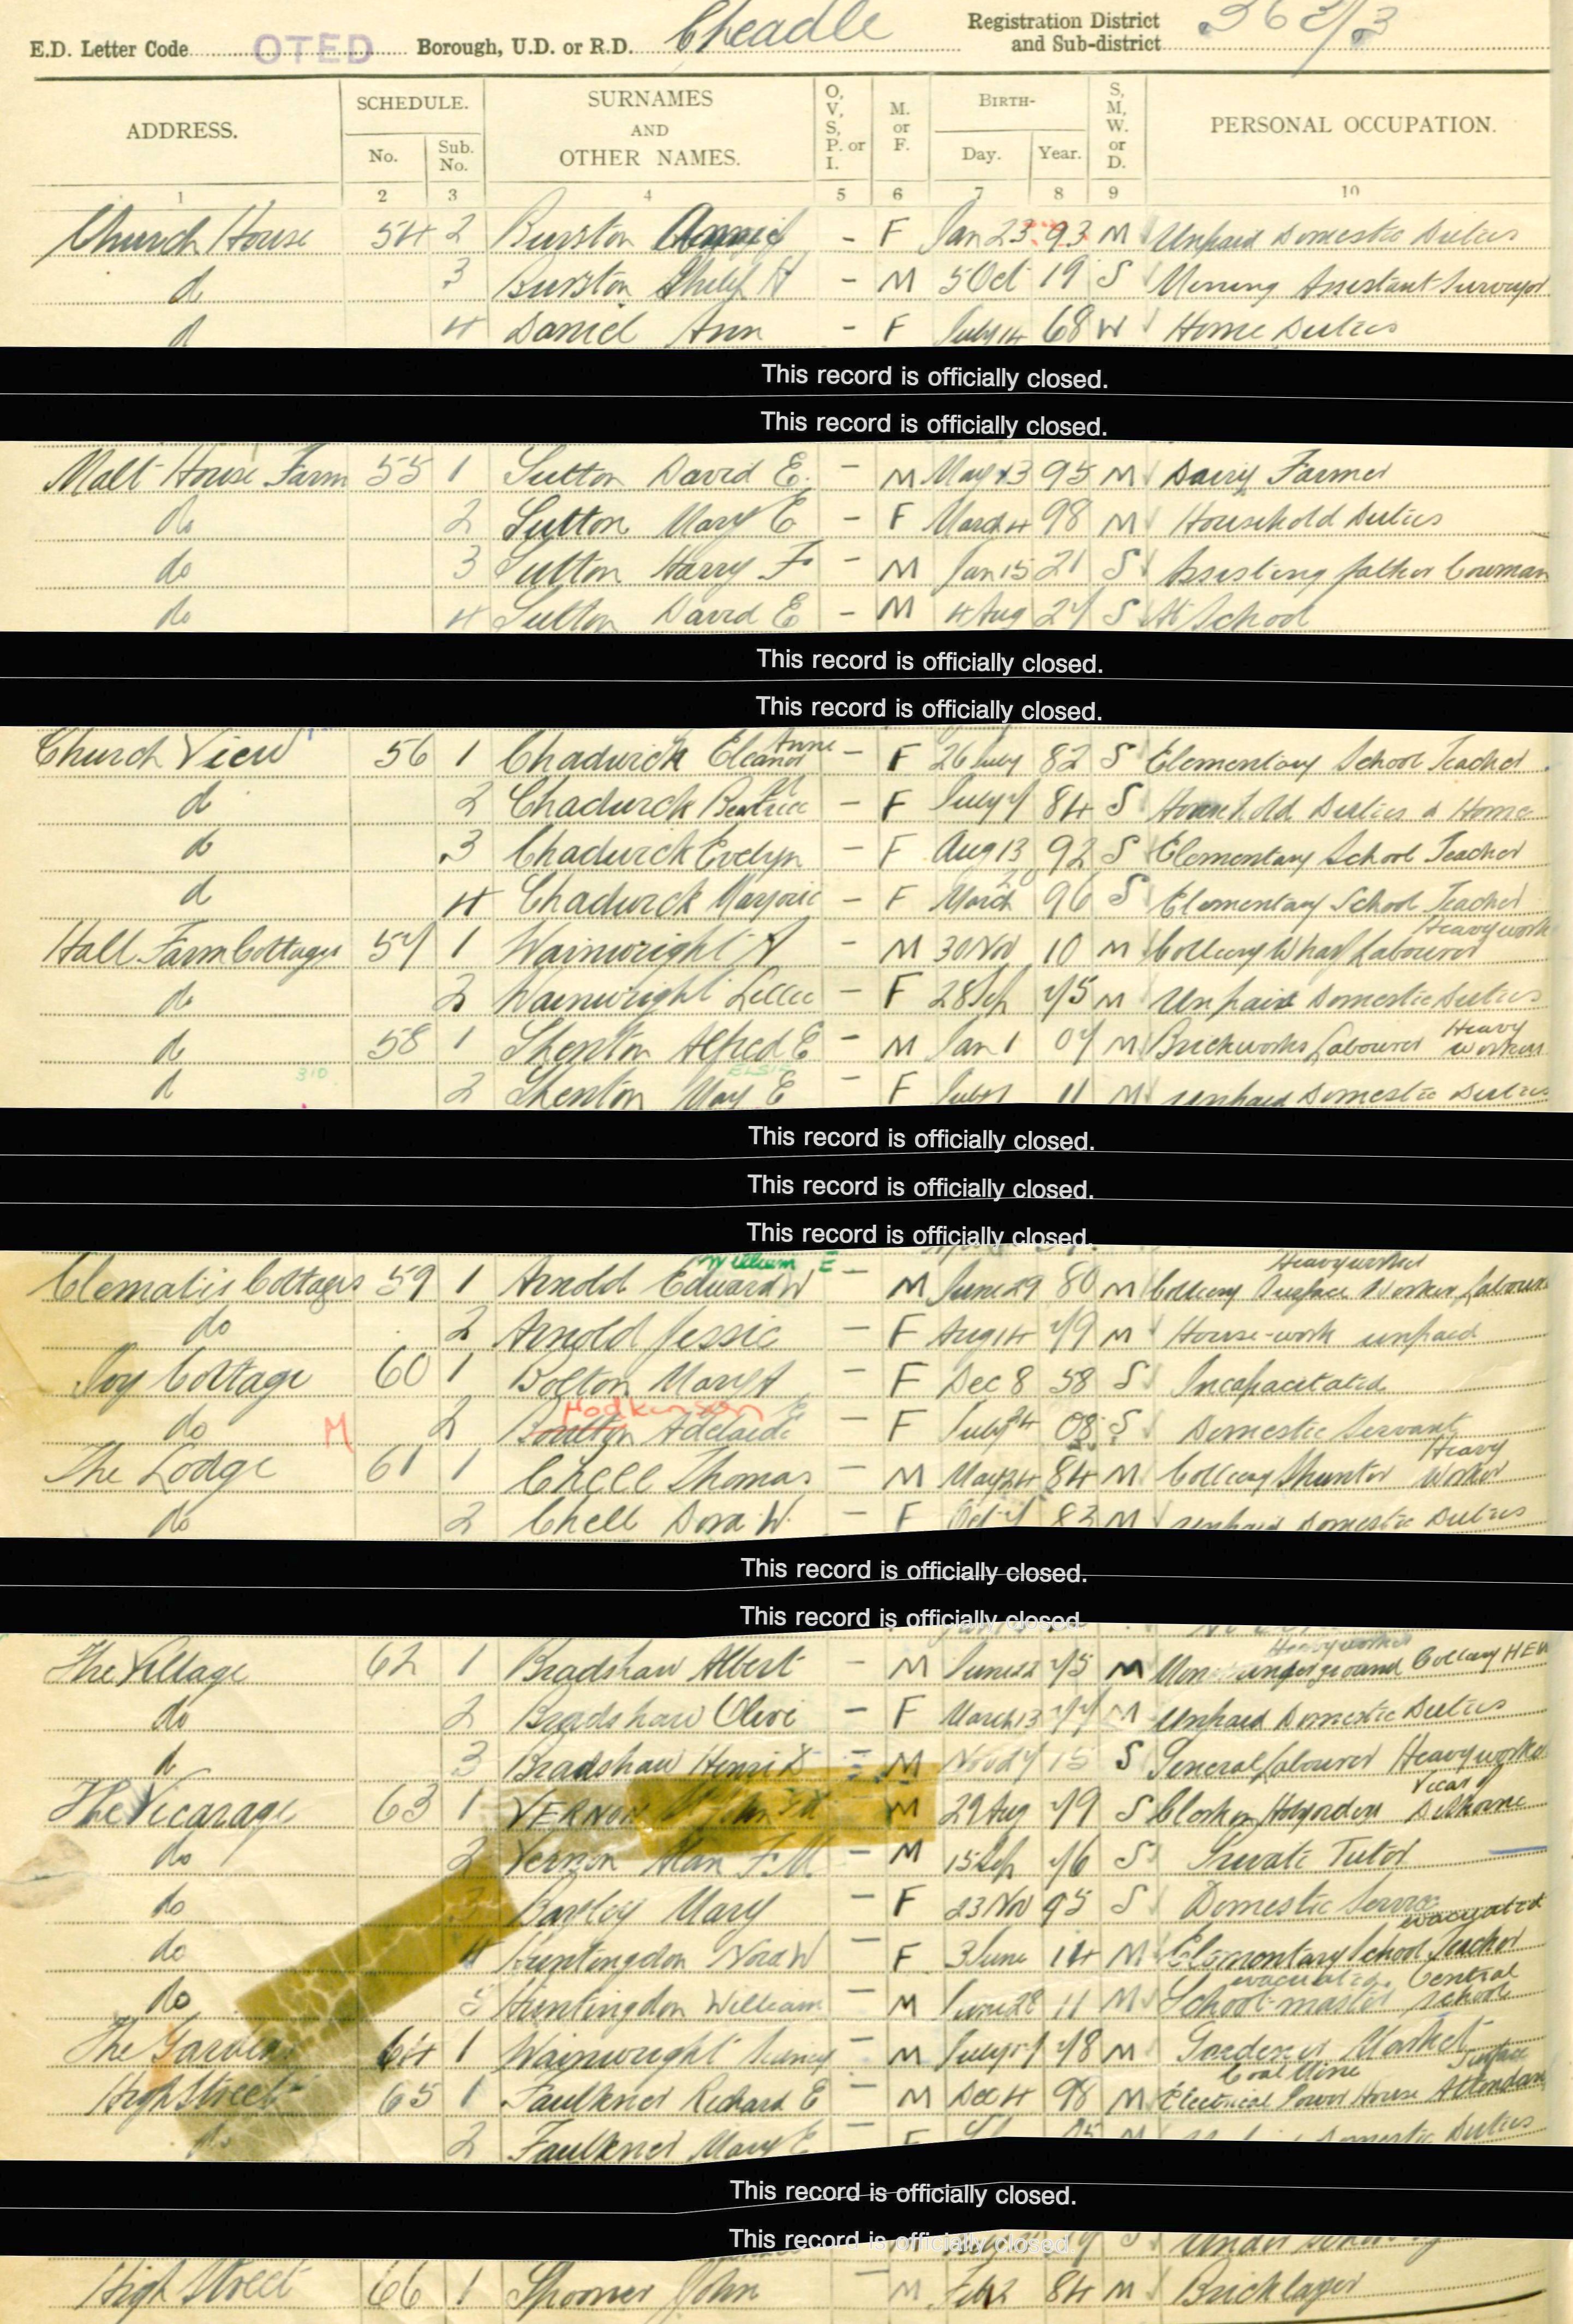 E.D. Letter Code OTED Borough, U.D. or R.D. Cheadle Registration District and Sub-district 362/3
ADDRESS. SCHEDULE. No. Sub. No. SURNAMES AND OTHER NAMES. O, V, S, P. or I. M. or F. BIRTH- Day. Year. S, M, W. or D. PERSONAL OCCUPATION.
1 2 3 4 5 6 7 8 9 10
Church House 54 2 Burston Annie - F Jan 23 93 M Unpaid Domestic Duties
do 3 Burston Philip H - M 5 Oct 19 S Mining Assistant Surveyor
do 4 Daniel Ann - F July 14 68 W Home Duties
This record is officially closed.
This record is officially closed.
Malt House Farm 55 1 Sutton David E. - M May 13 95 M Dairy Farmer
do 2 Sutton Mary E - F March 4 98 M Household Duties
do 3 Sutton Harry F - M Jan 15 21 S Assisting father Cowman
do 4 Sutton David E - M 4 Aug 27 S At School
This record is officially closed.
This record is officially closed.
Church View 56 1 Chadwick Eleanor Anne - F 26 July 82 S Elementary School Teacher
do 2 Chadwick Beatrice - F July 7 84 S Household Duties a Home
do 3 Chadwick Evelyn - F Aug 13 92 S Elementary School Teacher
do 4 Chadwick Marjorie - F March 20 96 S Elementary School Teacher
Hall Farm Cottages 57 1 Wainwright A - M 30 Nov 10 M Colliery Wharf Labourer Heavy work
do 2 Wainwright Lillie - F 28 Sep 75 M Unpaid Domestic Duties
do 58 1 Shenton Alfred E - M Jan 1 07 M Brickworks Labourer Heavy Worker
do 310 2 Shenton May E ELSIE - F July 1 11 M Unpaid Domestic Duties
This record is officially closed.
This record is officially closed.
This record is officially closed.
Clematis Cottages 59 1 Arnold Edward W William E - M June 29 80 M Colliery Surface Worker Labour Heavy worker
do 2 Arnold Jessie - F Aug 14 79 M House-work unpaid
Ivy Cottage 60 1 Bolton Mary A - F Dec 8 58 S Incapacitated
do M 2 Boulton Hodkinson Adelaide E - F July 24 08 S Domestic Servant
The Lodge 61 1 Chell Thomas - M May 24 84 M Colliery Shunter Heavy Worker
do 2 Chell Dora W. - F Oct 7 83 M Unpaid Domestic Duties
This record is officially closed.
This record is officially closed.
The Village 62 1 Bradshaw Albert - M June 22 75 M underground Colliery HEW Heavy worker
do 2 Bradshaw Olive - F March 13 77 M Unpaid Domestic Duties
do 3 Bradshaw Henri - M Nov 15 S General Labourer Heavy worker
The Vicarage 63 1 VERNON John M 29 Aug 79 S Clerk in Holy orders Vicar of Dilhorne
do 2 Vernon Alan F. M. - M 15 Sep 76 S Private Tutor
do 3 Barley Mary - F 23 Nov 95 S Domestic Service
do 4 Huntingdon Nora W - F 3 June 14 M Elementary School Teacher evacuated
do 5 Huntingdon William - M June 28 11 M School-master evacuated. Central Schools
The Gardens 64 1 Wainwright Sidney - M July 78 M Gardener Market
High Street 65 1 Faulkner Richard E - M Dec 4 98 M Electrical Power House Attendant Coal Mine Surface
do 2 Faulkner Mary E - F M Domestic Duties
This record is officially closed.
This record is officially closed.
High Street 66 1 Spooner John - M Feb 2 84 M Bricklayer